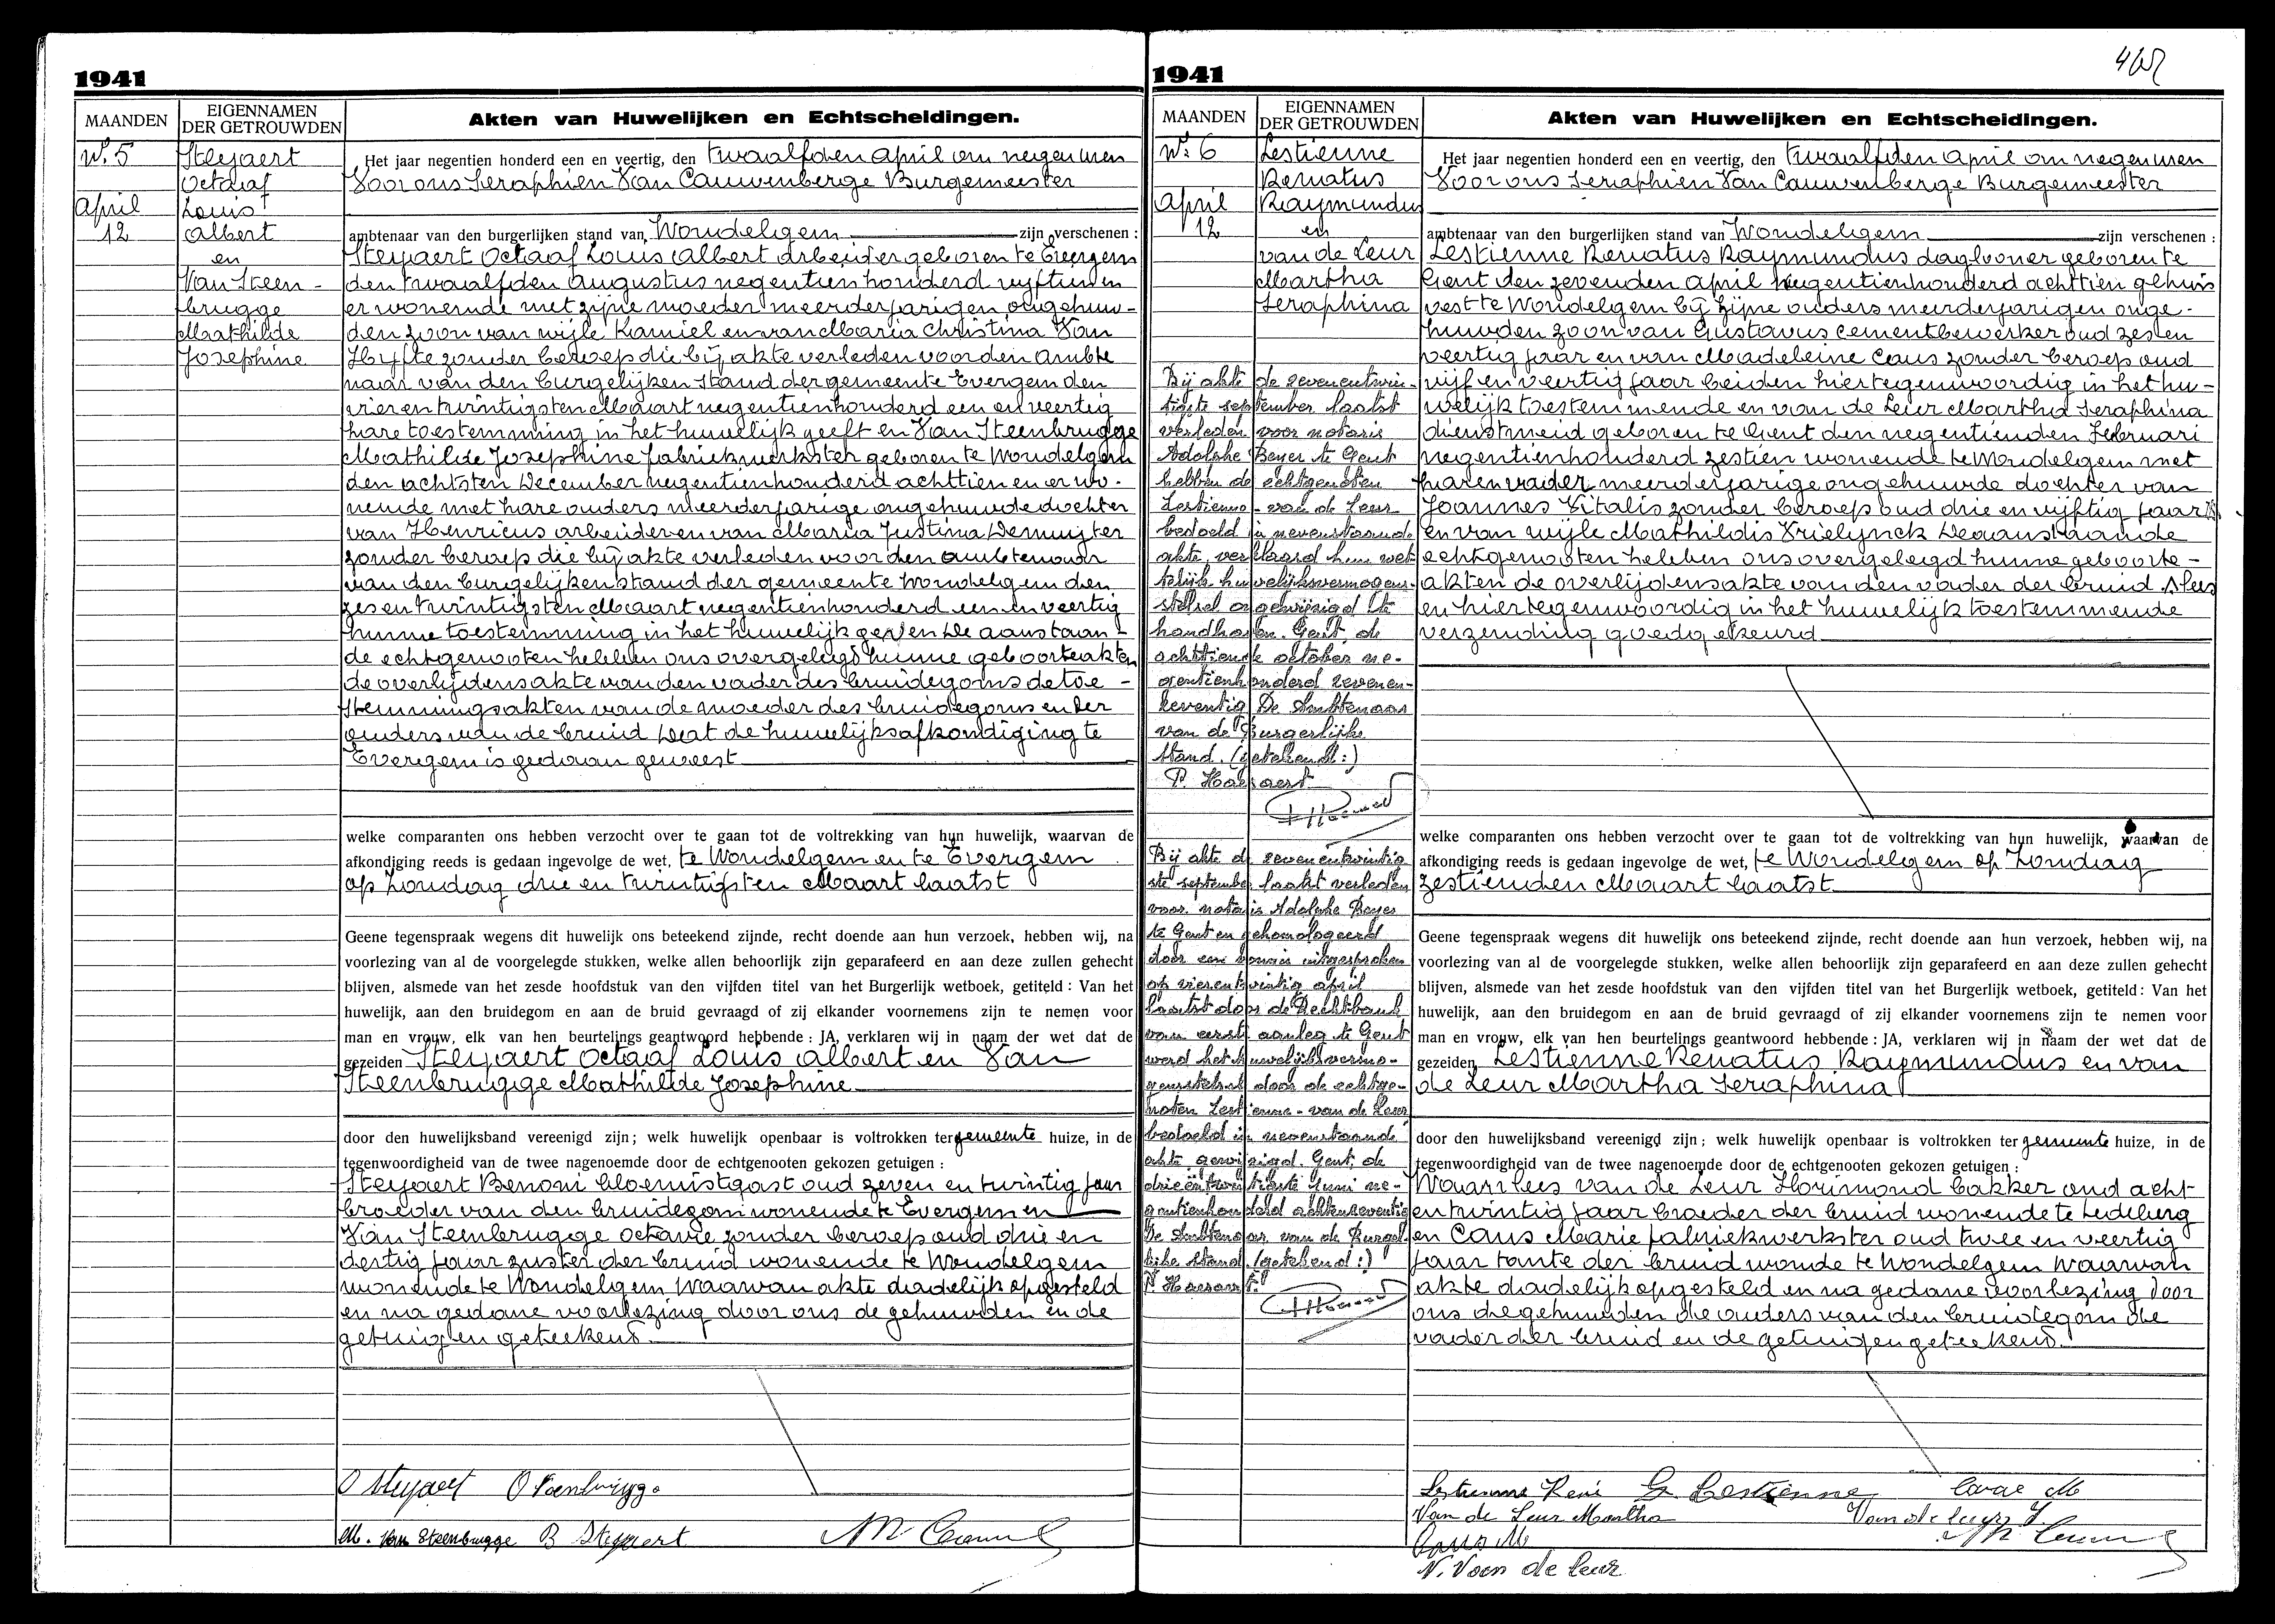 1941
MAANDEN
EIGENNAMEN
DER GETROUWDEN
Akten van Huwelijken en Echtscheidingen.
N.º 5
April
12
Steyaert
Octaaf
Louis
Albert
en
Van Steen-
brugge
Mathilde
Josephine
Het jaar negentien honderd een en veertig, den twaalfden April om negen uren
Voor ons Seraphien Van Cauwenberge Burgemeester
ambtenaar van den burgerlijken stand van Wondelgem zijn verschenen :
Steyaert Octaaf Louis Albert arbeider geboren te Evergem
den twaalfden Augustus negentien honderd vijftien en
er wonende met zijne moeder meerderjarigen ongehuw-
den zoon van wijle Kamiel en van Maria Christina Van
Hyfte zonder beroep die bij akte verleden voor den ambte
naar van den burgelijken stand der gemeente Evergem den
vier en twintigsten Maart negentienhonderd een en veertig
hare toestemming in het huwelijk geeft en Van Steenbrugge
Mathilde Josephine fabriekwerkster geboren te Wondelgem
den achtsten December negentienhonderd achttien en er wo-
nende met hare ouders meerderjarige ongehuwde dochter
van Henricus arbeider en van Maria Justina Demuijter
zonder beroep die bij akte verleden voor den ambtenaar
van den burgelijken stand der gemeente Wondelgem den
zes en twintigsten Maart negentienhonderd een en veertig
hunne toestemming in het huwelijk geven De aanstaan-
de echtgenooten hebben ons overgelegd hunne geboorteakten
de overlijdensakte van den vader des bruidegoms de toe-
stemmingsakten van de moeder des bruidegoms en der
ouders van de bruid Dat de huwelijksafkondiging te
Evergem is gedaan geweest
welke comparanten ons hebben verzocht over te gaan tot de voltrekking van hun huwelijk, waarvan de
afkondiging reeds is gedaan ingevolge de wet, te Wondelgem en te Evergem
op Zondag drie en twintigsten Maart laatst
Geene tegenspraak wegens dit huwelijk ons beteekend zijnde, recht doende aan hun verzoek, hebben wij, na
voorlezing van al de voorgelegde stukken, welke allen behoorlijk zijn geparafeerd en aan deze zullen gehecht
blijven, alsmede van het zesde hoofdstuk van den vijfden titel van het Burgerlijk wetboek, getiteld : Van het
huwelijk, aan den bruidegom en aan de bruid gevraagd of zij elkander voornemens zijn te nemen voor
man en vrouw, elk van hen beurtelings geantwoord hebbende : JA, verklaren wij in naam der wet dat de
gezeiden Steyaert Octaaf Louis Albert en Van
Steenbrugge Mathilde Josephine
door den huwelijksband vereenigd zijn ; welk huwelijk openbaar is voltrokken ter gemeente huize, in de
tegenwoordigheid van de twee nagenoemde door de echtgenooten gekozen getuigen :
Steyaert Benoni bloemistgast oud zeven en twintig jaar
broeder van den bruidegom wonende te Evergem en
Van Steenbrugge Octavie zonder beroep oud drie en
dertig jaar zuster der bruid wonende te Wondelgem
wonende te Wondelgem Waarvan akte dadelijk opgesteld
en na gedane voorlezing door ons de gehuwden en de
getuigen geteekend.
O Steyaert
M. Van Steenbrugge B Steyaert
1941
MAANDEN
EIGENNAMEN
DER GETROUWDEN
Akten van Huwelijken en Echtscheidingen.
N.º 6
April
12
Lestienne
Renatus
Raymundus
en
van de Leur
Martha
Seraphina
Bij akte de zevenentwin-
tigste september laatst
verleden voor notaris
Adolphe Beyer te Gent
hebben de echtgenoten
Lestienne - van de Leur
bedoeld in nevenstaande
akte, verklaard hun wet-
telijk huwelijksvermogens-
stelsel ongewijzigd te
handhaven. Gent, de
achttiende october ne-
gentienhonderd zevenen-
zeventig De Ambtenaar
van de Burgerlijke
Stand. (getekend :)
P. Haesaert
Bij akte de zevenentwintig
ste september laatst verleden
voor notaris Adolphe Beyer
te Gent en gehomologeerd
door een vonnis uitgesproken
op vierentwintig april
laatst door de Rechtbank
van eerste aanleg te Gent
werd het huwelijksvermo-
gensstelsel door de echtge-
noten Lestienne - van de Leur
bedoeld in nevenstaande
akte gewijzigd. Gent, de
drieëntwintigste juni ne-
gentienhonderd achtenzeventig
De Ambtenaar van de Burger-
lijke Stand (getekend :)
P. Haesaert.
Het jaar negentien honderd een en veertig, den twaalfden April om negen uren
Voor ons Seraphien Van Cauwenberge Burgemeester
ambtenaar van den burgerlijken stand van Wondelgem zijn verschenen :
Lestienne Renatus Raymundus daglooner geboren te
Gent den zevenden April negentienhonderd achttien gehuis
vest te Wondelgem bij zijne ouders meerderjarigen onge-
huwden zoon van Gustavus cementbewerker oud zes en
veertig jaar en van Madeleine Caus zonder beroep oud
vijf en veertig jaar beiden hiertegenwoordig in het hu-
welijk toestemmende en van de Leur Martha Seraphina
dienstmeid geboren te Gent den negentienden Februari
negentienhonderd zestien wonende te Wondelgem met
haren vader meerderjarige ongehuwde dochter van
Joannes Vitalis zonder beroep oud drie en vijftig jaar
en van wijle Mathildis Vrielynck De aanstaande
echtgenooten hebben ons overgelegd hunne geboorte-
akten de overlijdensakte van den vader der bruid
en hiertegenwoordig in het huwelijk toestemmende
verzending goedgekeurd
welke comparanten ons hebben verzocht over te gaan tot de voltrekking van hun huwelijk, waarvan de
afkondiging reeds is gedaan ingevolge de wet, te Wondelgem op Zondag
zestienden Maart laatst
Geene tegenspraak wegens dit huwelijk ons beteekend zijnde, recht doende aan hun verzoek, hebben wij, na
voorlezing van al de voorgelegde stukken, welke allen behoorlijk zijn geparafeerd en aan deze zullen gehecht
blijven, alsmede van het zesde hoofdstuk van den vijfden titel van het Burgerlijk wetboek, getiteld : Van het
huwelijk, aan den bruidegom en aan de bruid gevraagd of zij elkander voornemens zijn te nemen voor
man en vrouw, elk van hen beurtelings geantwoord hebbende : JA, verklaren wij in naam der wet dat de
gezeiden Lestienne Renatus Raymundus en van
de Leur Martha Seraphina
door den huwelijksband vereenigd zijn ; welk huwelijk openbaar is voltrokken ter gemeente huize, in de
tegenwoordigheid van de twee nagenoemde door de echtgenooten gekozen getuigen :
van de Leur Florimond bakker oud acht
en twintig jaar broeder der bruid wonende te Ledeberg
en Caus Marie fabriekwerkster oud twee en veertig
jaar tante der bruid wonde te Wondelgem Waarvan
akte dadelijk opgesteld en na gedane voorlezing door
ons de gehuwden de ouders van den bruidegom de
vader der bruid en de getuigen geteekend.
Lestienne René G. Lestienne
Van de Leur Martha Van de Leur
Caus M
V. Van de Leur